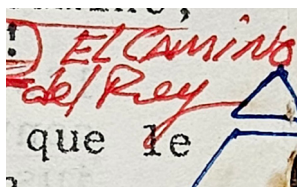 ! EL CAMINO
del Rey
que le